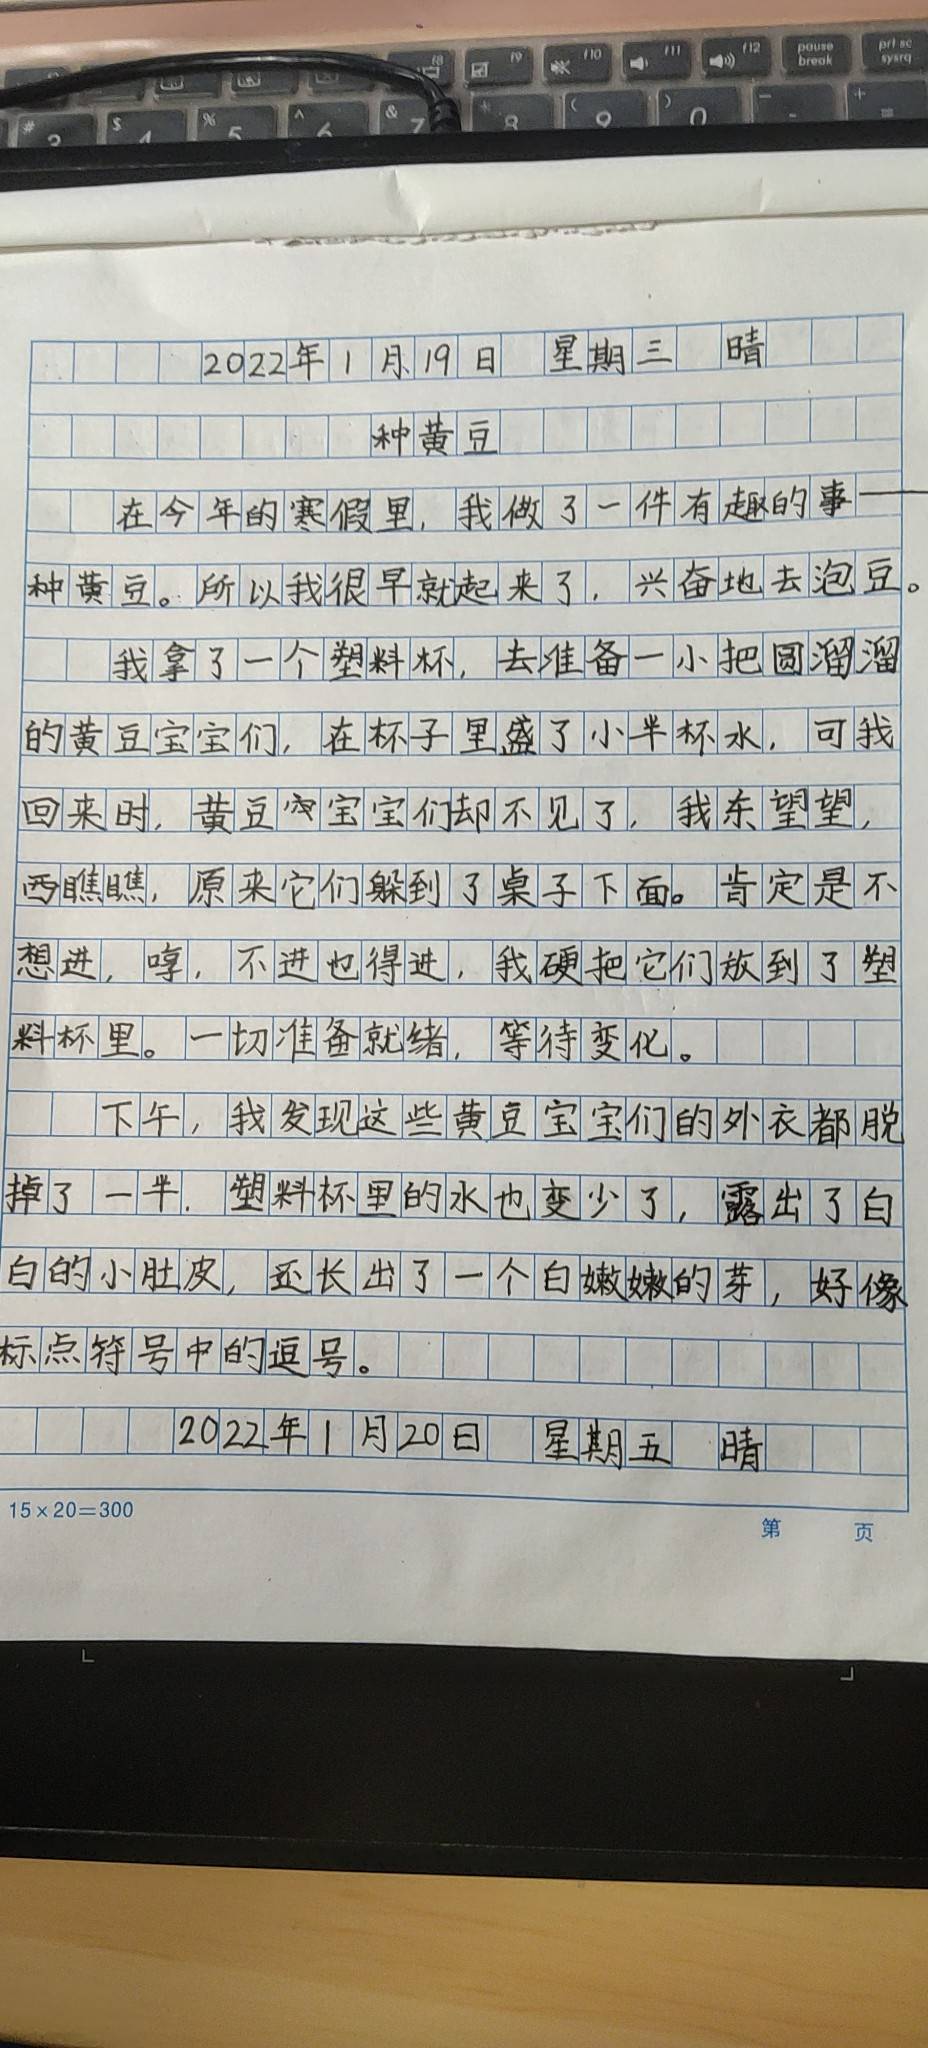 f8 f9 f10 f11 f12 pause break prt sc sysrq
# 3 $ 4 % 5 ^ 6 & 7 * 8 ( 9 ) 0 - + =
2022年1月19日 星期三 晴
种黄豆
在今年的寒假里，我做了一件有趣的事——
种黄豆。所以我很早就起来了，兴奋地去泡豆。
我拿了一个塑料杯，去准备一小把圆溜溜
的黄豆宝宝们，在杯子里盛了小半杯水，可我
回来时，黄豆宝宝们却不见了，我东望望，
西瞧瞧，原来它们躲到了桌子下面。肯定是不
想进，哼，不进也得进，我硬把它们放到了塑
料杯里。一切准备就绪，等待变化。
下午，我发现这些黄豆宝宝们的外衣都脱
掉了一半．塑料杯里的水也变少了，露出了白
白的小肚皮，还长出了一个白嫩嫩的芽，好像
标点符号中的逗号。
2022年1月20日 星期五 晴
15×20=300
第 页